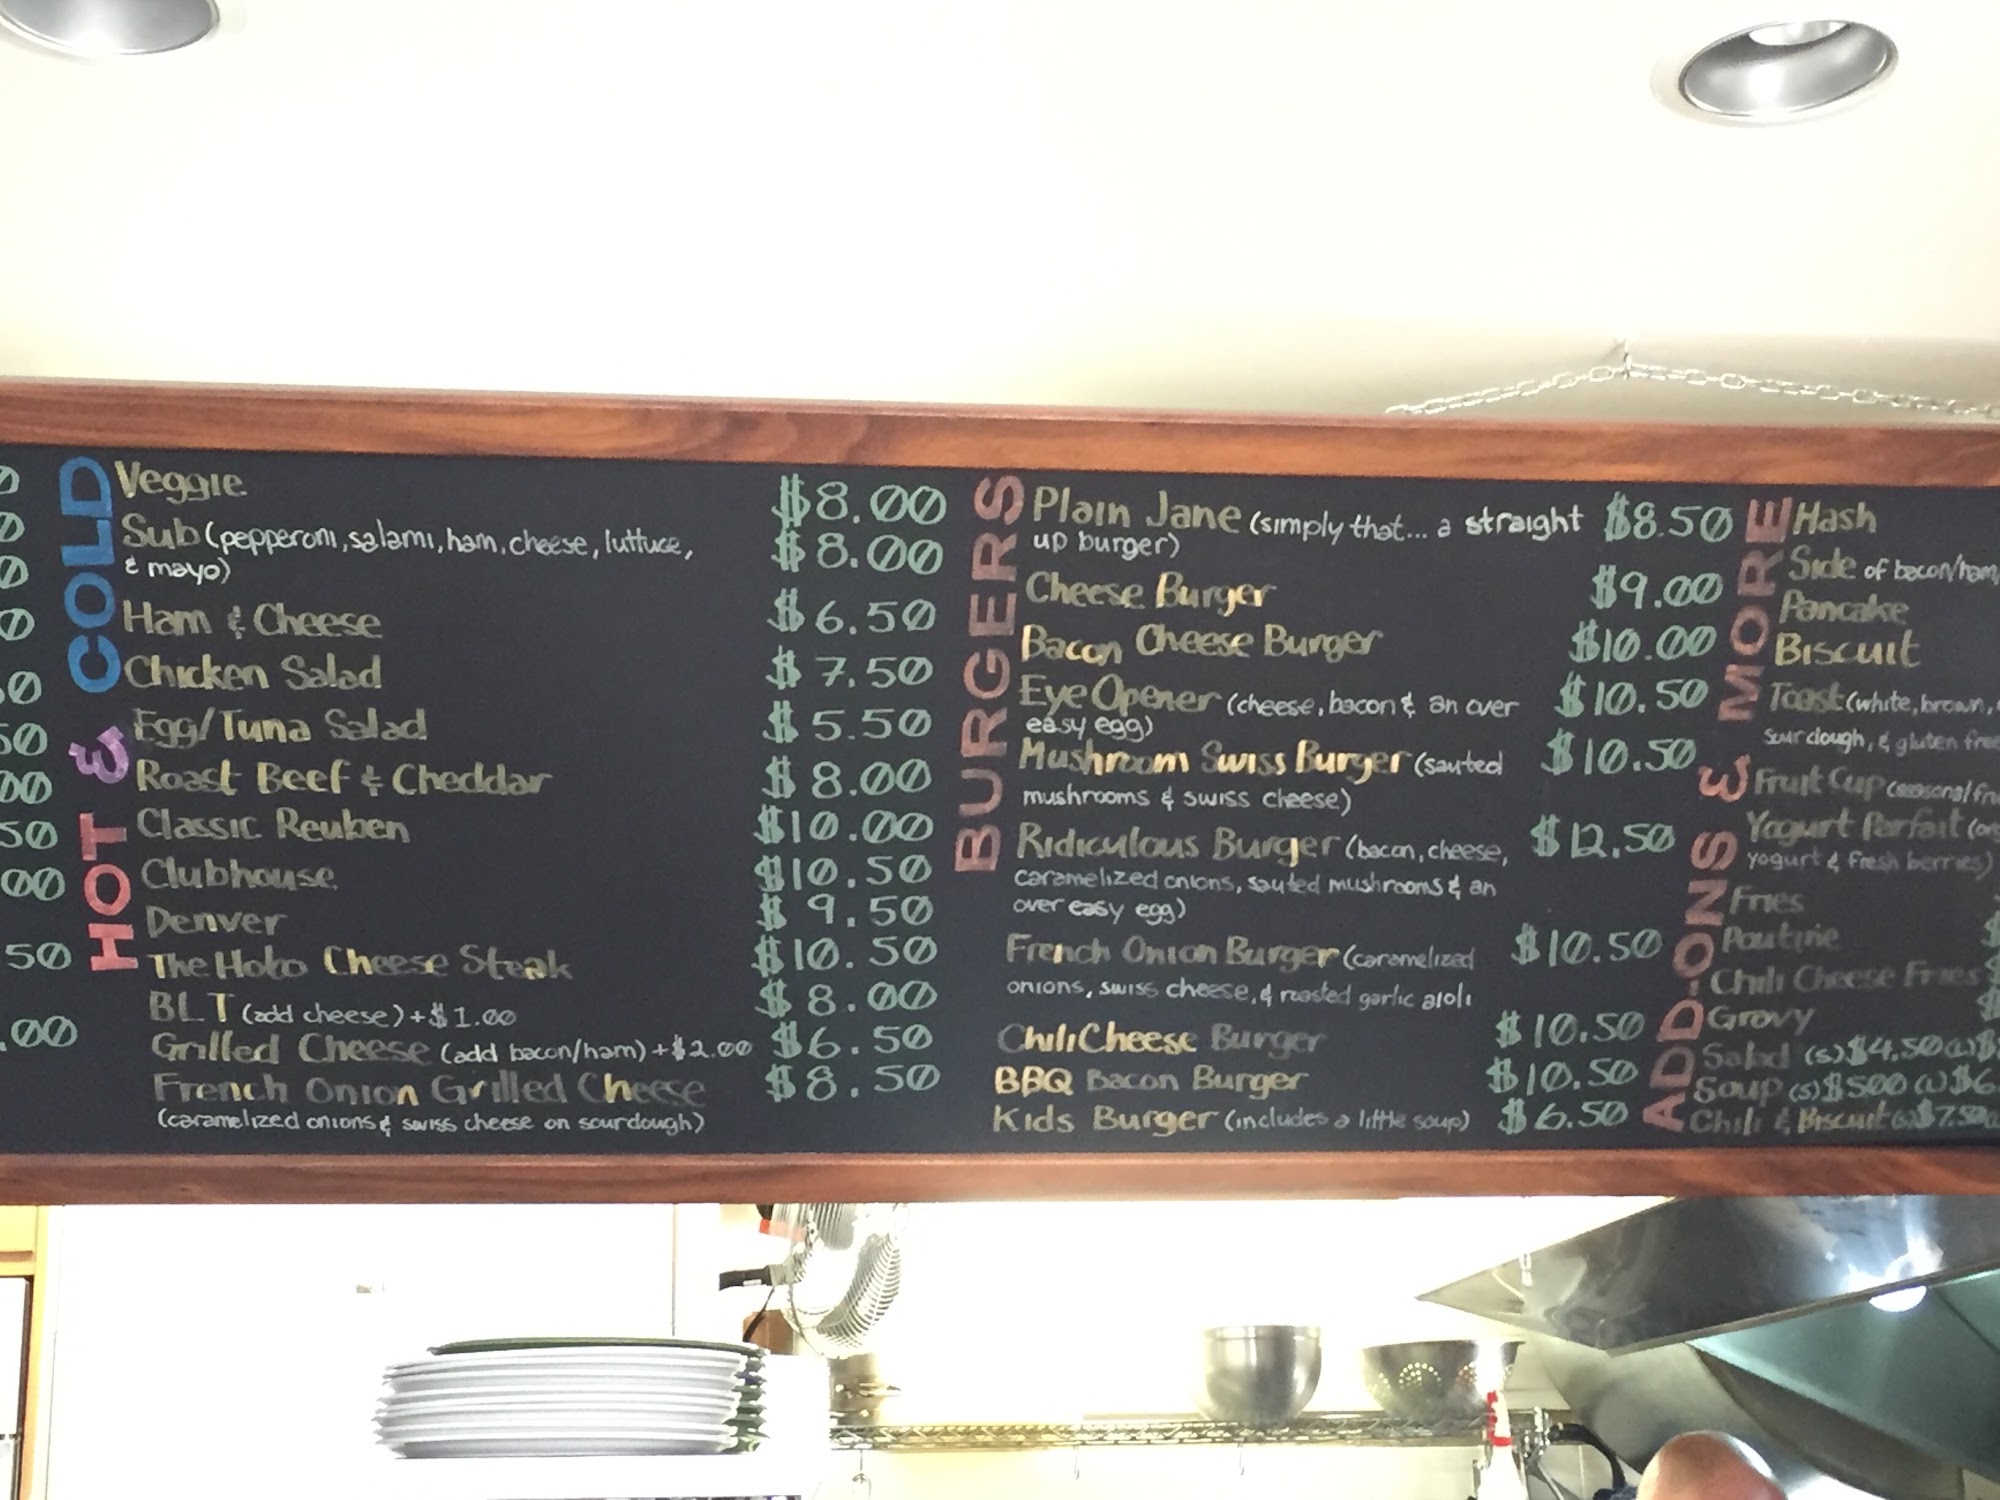 HOT & COLD
Veggie $8.00
Sub (pepperoni, salami, ham, cheese, luttuce, $8.00
& mayo)
Ham & Cheese $6.50
Chicken Salad $7.50
Egg/Tuna Salad $5.50
Roast Beef & Cheddar $8.00
Classic Reuben $10.00
Clubhouse $10.50
Denver $9.50
The Hobo Cheese Steak $10.50
BLT (add cheese) +$1.00 $8.00
Grilled Cheese (add bacon/ham) +$2.00 $6.50
French Onion Grilled Cheese $8.50
(caramelized onions & swiss cheese on sourdough)
BURGERS
Plain Jane (simply that... a straight $8.50
up burger)
Cheese Burger $9.00
Bacon Cheese Burger $10.00
Eye Opener (cheese, bacon & an over $10.50
easy egg)
Mushroom Swiss Burger (sauted $10.50
mushrooms & swiss cheese)
Ridiculous Burger (bacon, cheese, $12.50
caramelized onions, sauted mushrooms & an
over easy egg)
French Onion Burger (caramelized $10.50
onions, swiss cheese, & roasted garlic aioli
Chili Cheese Burger $10.50
BBQ Bacon Burger $10.50
Kids Burger (includes a little soup) $6.50
ADD-ONS & MORE
Hash
Side of bacon/ham,
Pancake
Biscuit
Toast (white, brown,
sourdough, & gluten free
Fruit Cup (seasonal
Yogurt Parfait
yogurt & fresh berries)
Fries
Poutine
Chili Cheese Fries
Gravy
Salad (s) $4.50 (L) $
Soup (s) $5.00 (L) $6.
Chili & Biscuit (s) $7.50